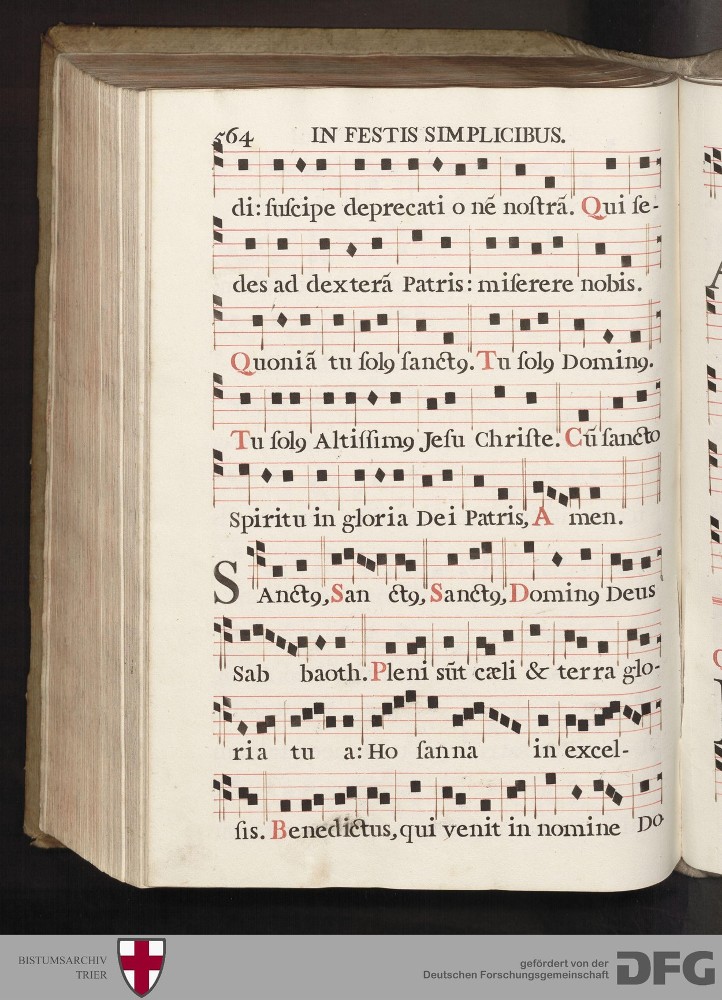 564 IN FESTIS SIMPLICIBUS.
di: ſuſcipe deprecati o nē noſtrã. Qui ſe-
des ad dexterã Patris: miſerere nobis.
Quoniã tu ſolꝰ ſanctꝰ. Tu ſolꝰ Dominꝰ.
Tu ſolꝰ Altiſſimꝰ Jeſu Chriſte. Cũ ſancto
Spiritu in gloria Dei Patris, A men.
SAnctꝰ, San ctꝰ, Sanctꝰ, Dominꝰ Deus
Sab baoth. Pleni sũt cæli & terra glo-
ria tu a: Ho ſanna in excel-
ſis. Benedictus, qui venit in nomine Do
BISTUMSARCHIV
TRIER
gefördert von der
Deutschen Forschungsgemeinschaft
DFG